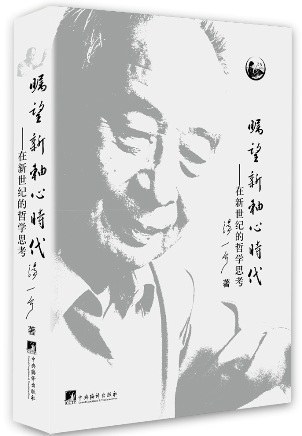 瞩望新轴心時代
——在新世纪的哲学思考
汤一介
著
中央编译出版社
瞩望新轴心時代
——在新世纪的哲学思考
汤一介 著
中央编译出版社